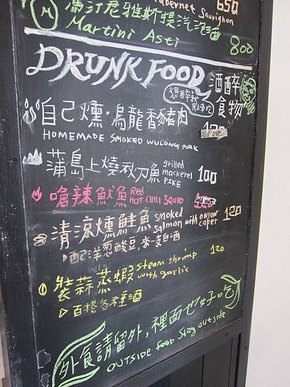 Cabernet Sauvignon 650
馬汀尼雅斯提汽泡酒
Martini Asti 800
DRUNK FOOD 酒醉食物
自己燻·烏龍香豬肉
HOMEMADE SMOKED WULONG PORK
蒲島上燒秋刀魚 grilled mackerel PIKE 100
嗆辣魷魚 Red HOT CHILI SQUID
清涼燻鮭魚 smoked salmon with onion caper 120
配洋蔥酸豆
裝蒜蒸蝦 steam shrimp with garlic 120
百搭各種酒
外食請留外，裡面也好吃
OUTSIDE food stay outside